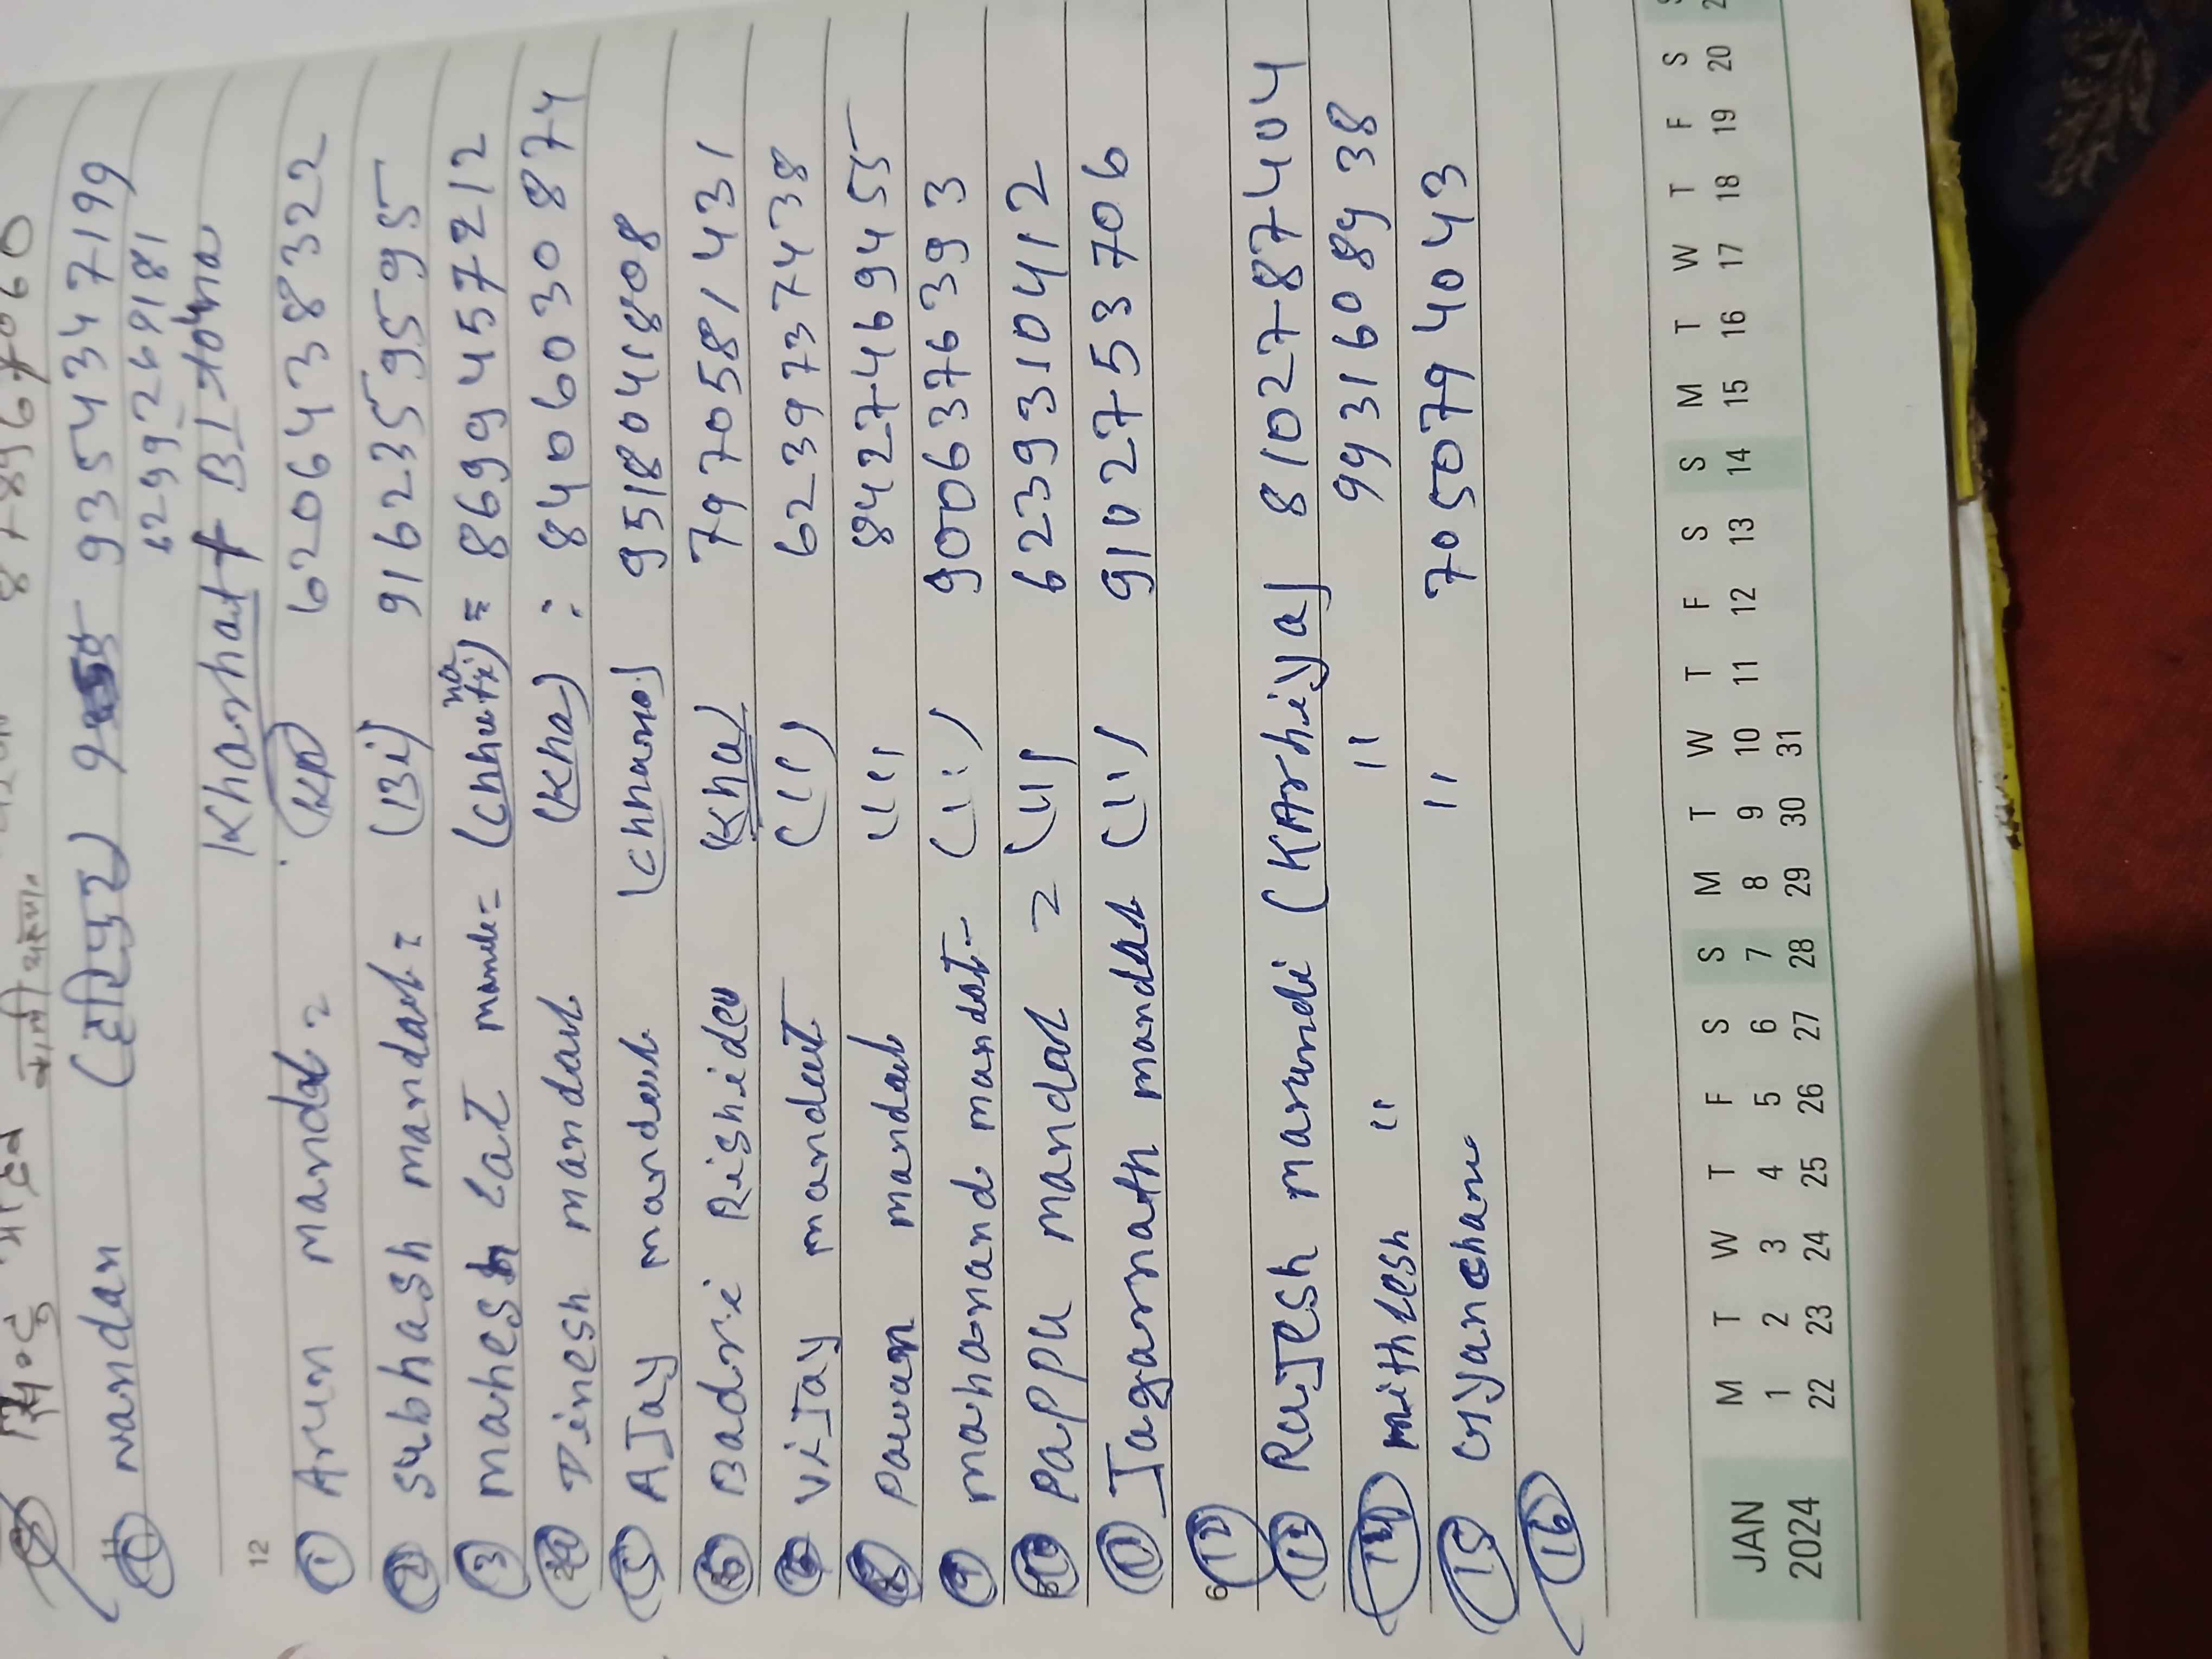 nandan (हरिपुर) 9354347199
6299269181
Kharhat + BI
12
① Arun mandal = (KP) 6206438322
② Subhash mandal = (Bi) 9162359595
③ mahesh Lal mandal = (Chhutni) = 8699457212
Dinesh mandal (Kha) : 8406030874
⑤ AJay mandal (Chharno) 9518041808
⑥ Badri Rishidev (Kha) 7970581431
ViJay mandal (11) 6239737438
⑧ Pawan mandal "" 8427469455
⑨ mahanand mandal - (11) 9006376393
⑩ Pappu mandal = (11) 6239310412
⑪ Jagarnath mandal (11) 9102753706
6 ⑫
⑬ RaJesh marundi (KArhiya) 81027-87404
⑭ mithlesh " " 9931608938
⑮ Gyanchanu " 7050794043
⑯
JAN 2024
M T W T F S S M T W T F S S M T W T F S S
1 2 3 4 5 6 7 8 9 10 11 12 13 14 15 16 17 18 19 20 2
22 23 24 25 26 27 28 29 30 31